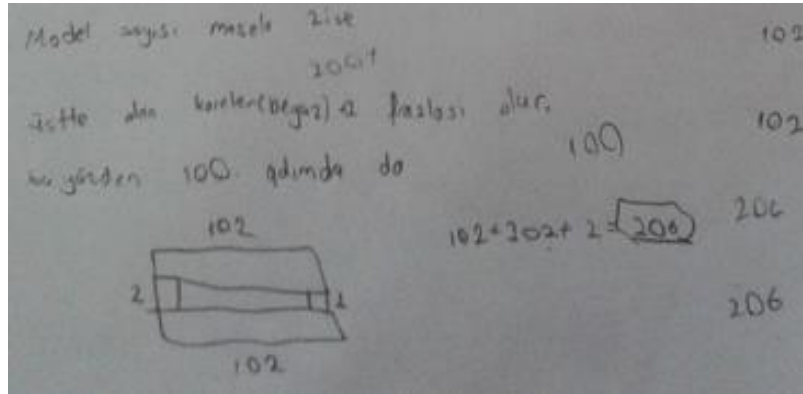 Model sayısı mesela 2ise
102
20Git
üstte olan kareler(beyaz) 2 fazlası olur.
102
bu yüzden 100. adımda da
100
102
102+102+2=206
206
2
1
206
102